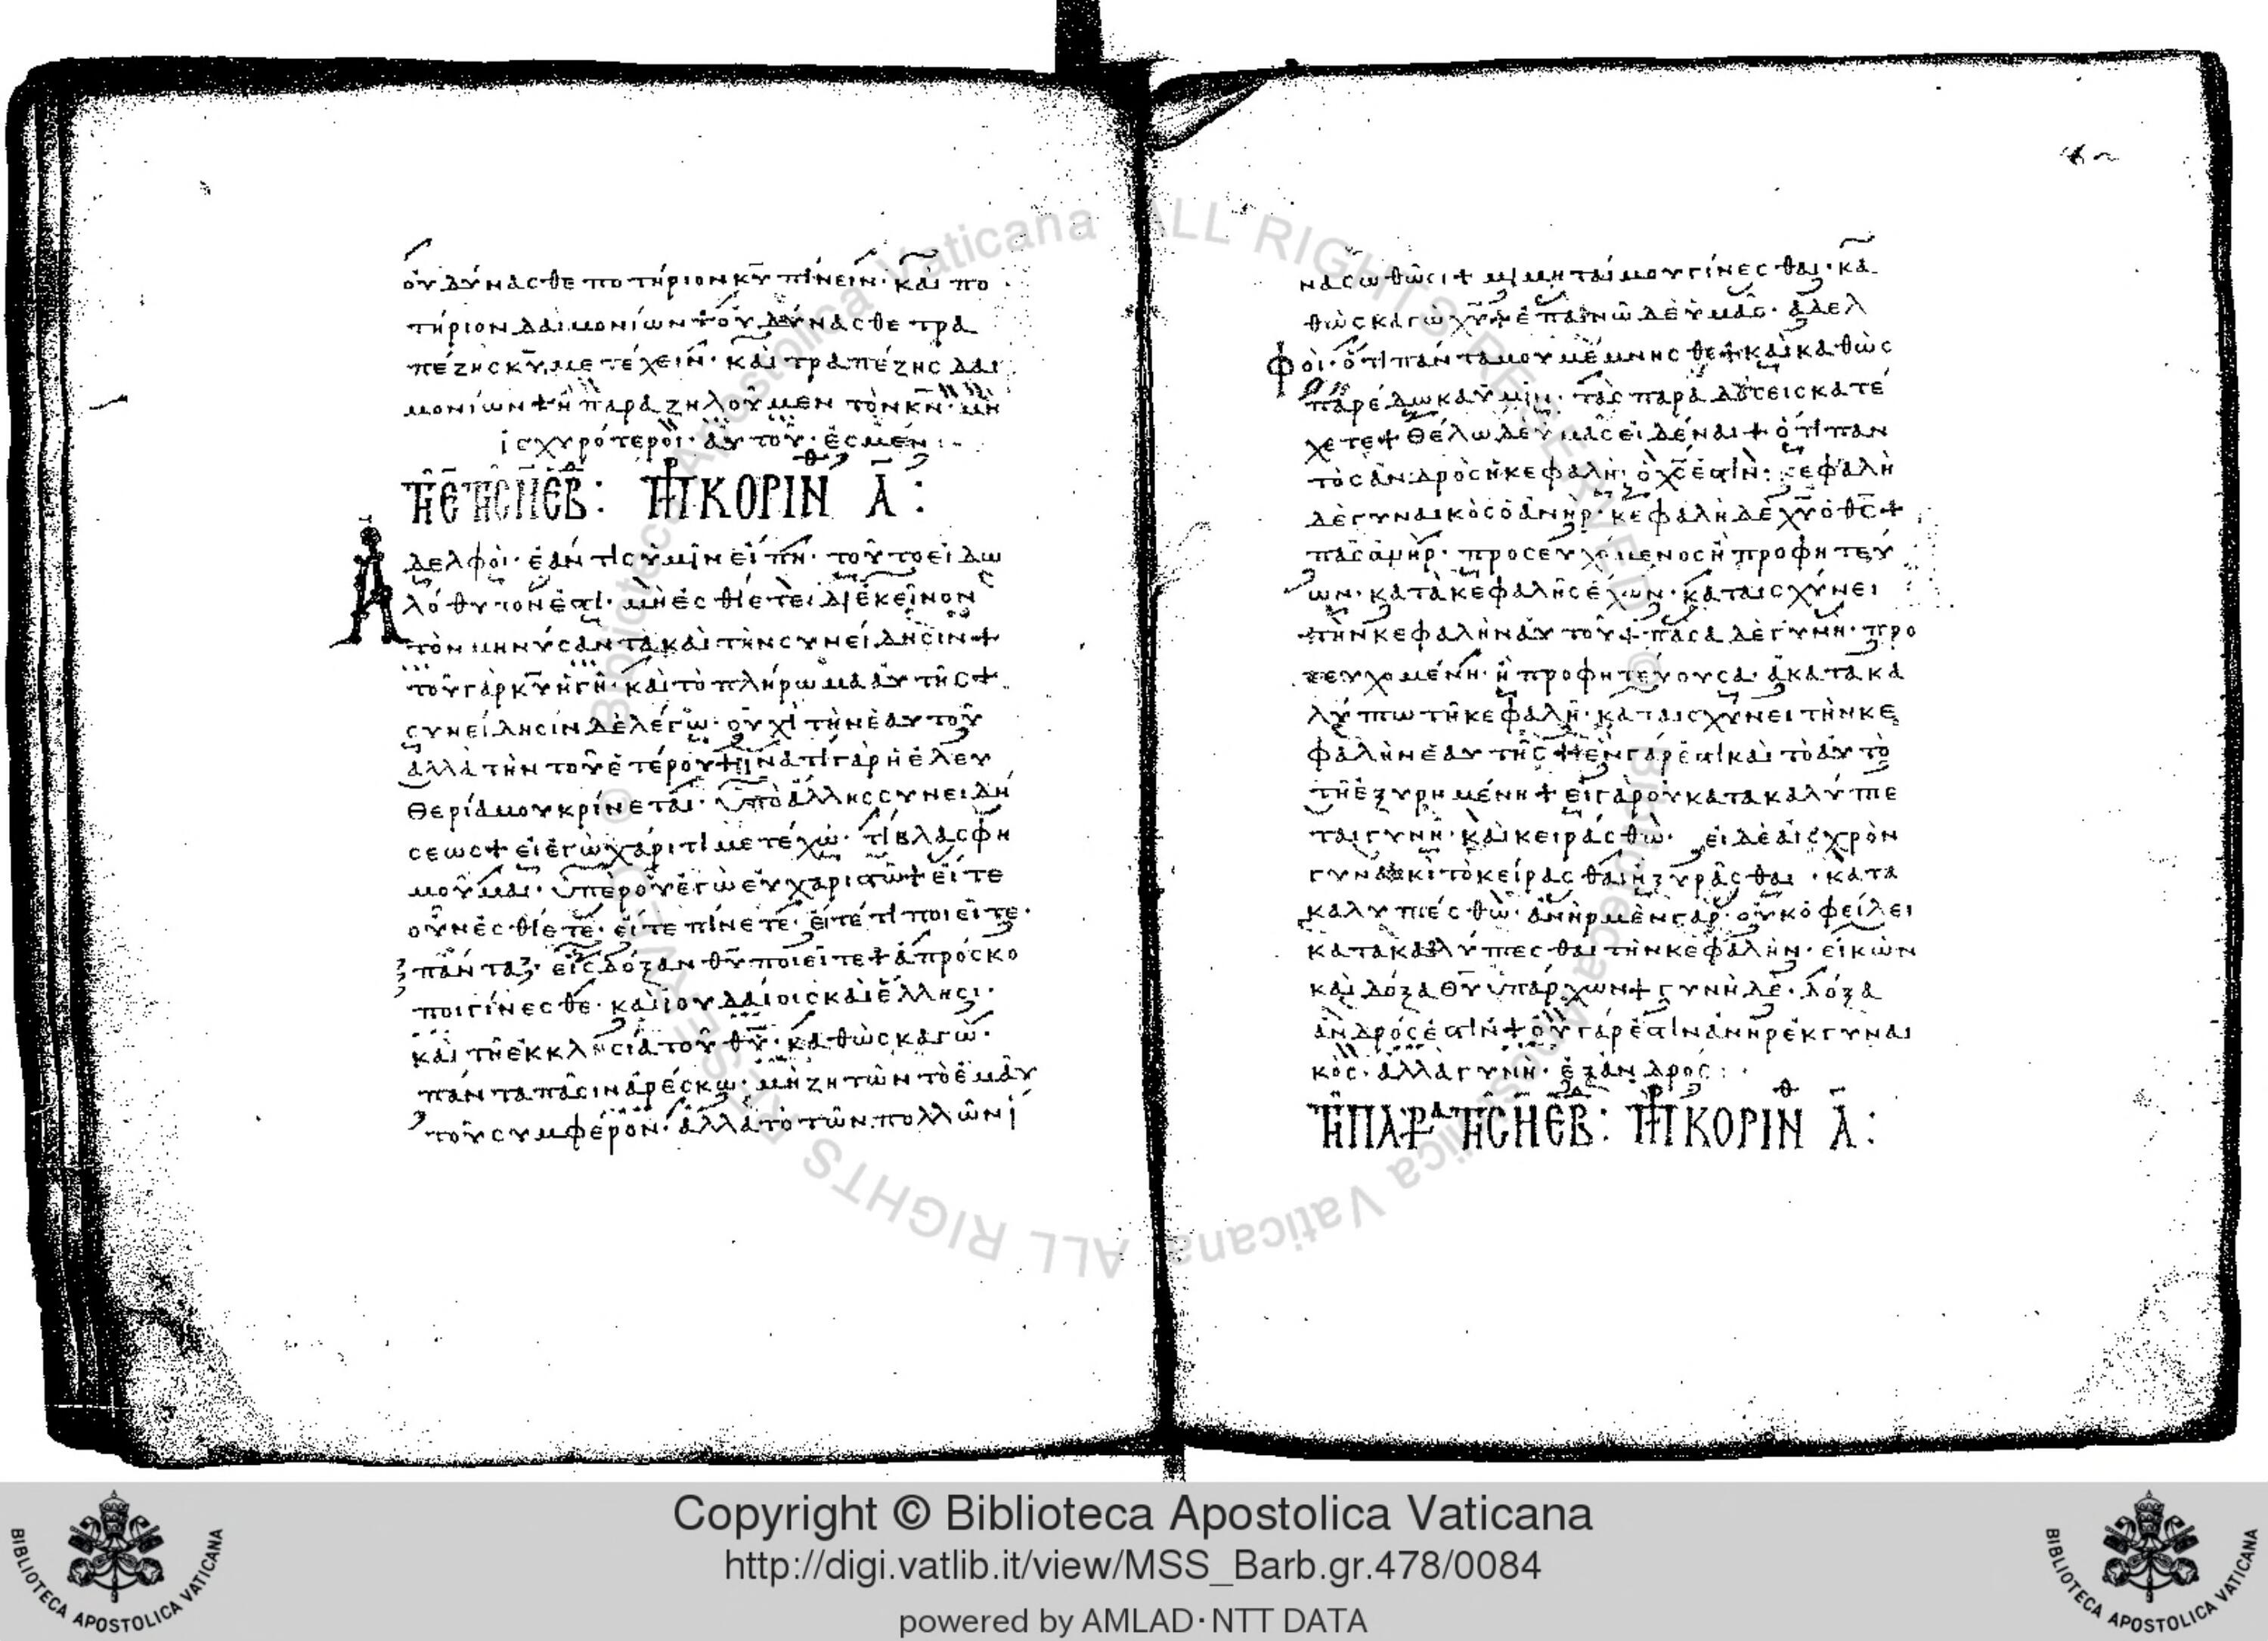 οὐ δύνασθε ποτήριον κ̅υ̅ πίνειν· καὶ πο
τήριον δαιμονίων + οὐ δύνασθε τρα
πέζης κ̅υ̅ μετέχειν· καὶ τραπέζης δαι
μονίων + ἢ παραζηλοῦμεν τὸν κ̅ν̅· μὴ
ἰσχυρότεροι· αὐτοῦ· ἐσμέν:-
κορινθ α̅:
Ἀδελφοὶ· ἐάν τις ὑμῖν εἴπη· τοῦτο εἰδω
λόθυτον ἐστι· μὴ ἐσθίετε· δι ἐκεῖνον
τὸν μηνύσαντα καὶ τὴν συνείδησιν +
τοῦ γὰρ κ̅υ̅ ἡ γῆ· καὶ τὸ πλήρωμα αὐτῆς +
συνείδησιν δὲ λέγω· οὐχὶ τὴν ἑαυτοῦ
ἀλλὰ τὴν τοῦ ἑτέρου + ἱνατί γὰρ ἡ ἐλευ
θερία μου κρίνεται· ὑπὸ ἄλλης συνειδή
σεως + εἰ ἐγὼ χάριτι μετέχω· τί βλασφη
μοῦμαι· ὑπὲρ οὗ ἐγὼ εὐχαριστῶ + εἴτε
οὖν ἐσθίετε· εἴτε πίνετε· εἴτέ τι ποιεῖτε·
πάντα· εἰς δόξαν θ̅υ̅ ποιεῖτε + ἀπρόσκο
ποι γίνεσθε· καὶ ἰουδαίοις καὶ ἕλλησι·
καὶ τῆ ἐκκλησία τοῦ θ̅υ̅· καθὼς καγὼ·
πάντα πᾶσιν ἀρέσκω· μὴ ζητῶν τὸ ἐμαυ
τοῦ συμφέρον· ἀλλὰ τὸ τῶν πολλῶν ἵ
να σωθῶσι + μιμηταί μου γίνεσθαι· κα
θὼς καγὼ χ̅υ̅ + ἐπαινῶ δὲ ὑμᾶς· ἀδελ
φοὶ· ὅτι πάντα μου μέμνησθε + καὶ καθὼς
παρέδωκα ὑμῖν· τὰς παραδόσεις κατέ
χετε + θέλω δὲ ὑμᾶς εἰδέναι + ὅτι παν
τὸς ἀνδρὸς ἡ κεφαλὴ· ὁ χ̅ς̅ ἐστὶν· κεφαλὴ
δὲ γυναικὸς ὁ ἀνήρ· κεφαλὴ δὲ χ̅υ̅ ὁ θ̅ς̅ +
πᾶς ἀνήρ· προσευχόμενος ἢ προφητεύ
ων· κατὰ κεφαλῆς ἔχων· καταισχύνει
τὴν κεφαλὴν αὐτοῦ + πᾶσα δὲ γυνή· προ
σευχομένη· ἢ προφητεύουσα· ἀκατακα
λύπτω τῆ κεφαλῆ· καταισχύνει τὴν κε
φαλὴν ἑαυτῆς + ἓν γάρ ἐστι καὶ τὸ αὐτὸ
τῆ ἐξυρημένη + εἰ γὰρ οὐ κατακαλύπτε
ται γυνή· καὶ κειράσθω· εἰ δὲ αἰσχρὸν
γυναικὶ τὸ κείρασθαι ἢ ξυρᾶσθαι· κατα
καλυπτέσθω· ἀνὴρ μὲν γὰρ· οὐκ ὀφείλει
κατακαλύπτεσθαι τὴν κεφαλήν· εἰκὼν
καὶ δόξα θ̅υ̅ ὑπάρχων + γυνὴ δὲ· δόξα
ἀνδρός ἐστιν + οὐ γάρ ἐστιν ἀνὴρ ἐκ γυναι
κός· ἀλλὰ γυνὴ· ἐξ ἀνδρός:·
κορινθ α̅:
Copyright © Biblioteca Apostolica Vaticana
http://digi.vatlib.it/view/MSS_Barb.gr.478/0084
powered by AMLAD·NTT DATA
BIBLIOTECA APOSTOLICA VATICANA
BIBLIOTECA APOSTOLICA VATICANA